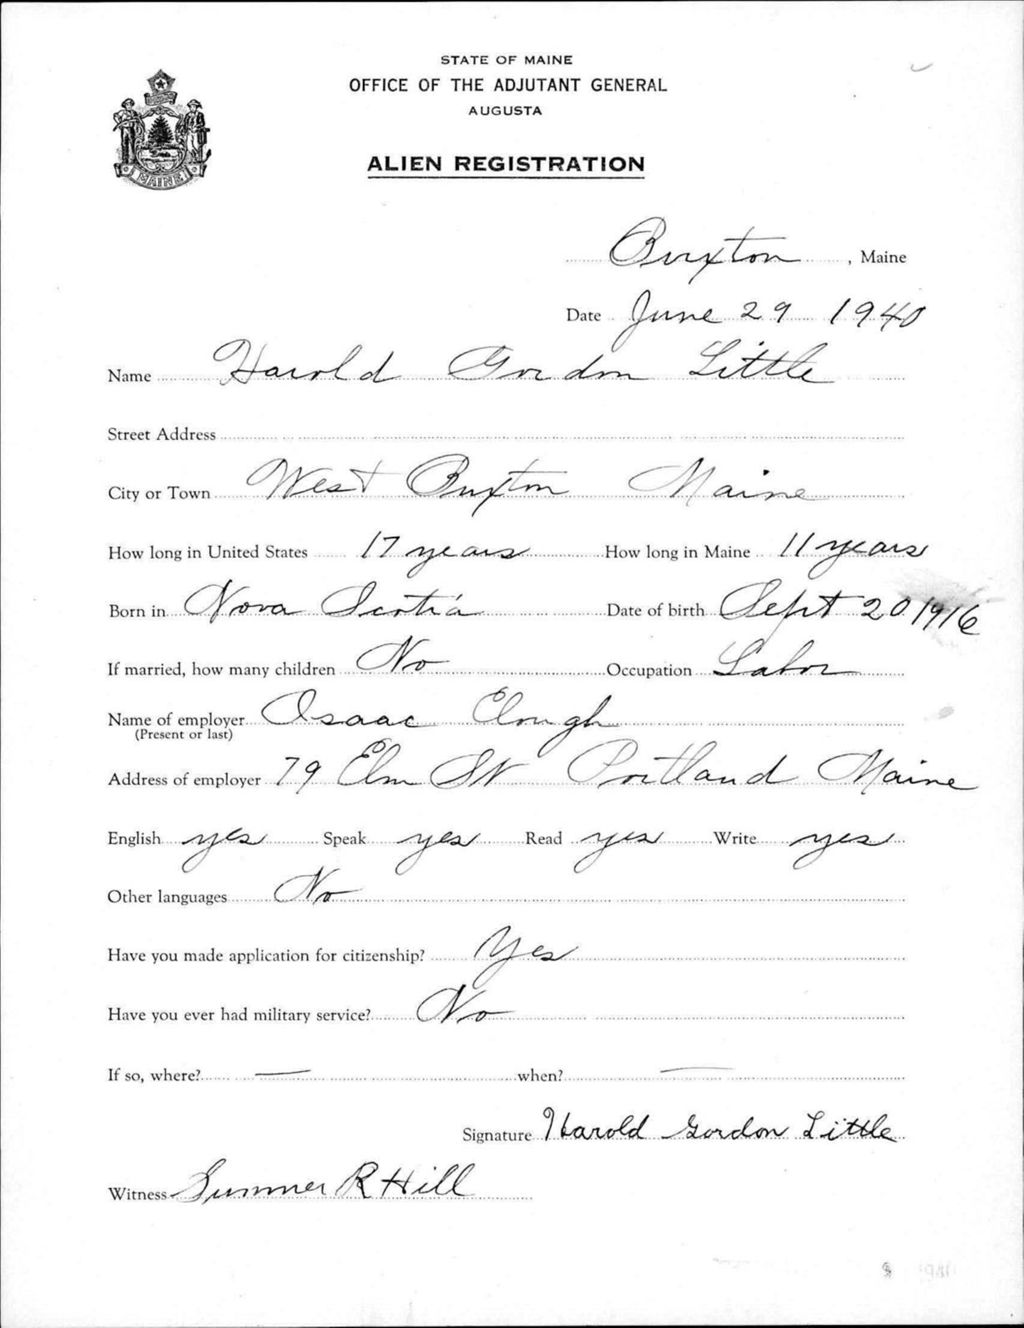 STATE OF MAINE
OFFICE OF THE ADJUTANT GENERAL
AUGUSTA
ALIEN REGISTRATION
MAINE
Buxton, Maine
Date June 29 1940
Name Harold Gordon Little
Street Address
City or Town West Buxton Maine
How long in United States 17 years How long in Maine 11 years
Born in Nova Scotia Date of birth Sept 20 1916
If married, how many children No Occupation Labor
Name of employer Isaac Clough
(Present or last)
Address of employer 79 Elm St Portland Maine
English yes Speak yes Read yes Write yes
Other languages No
Have you made application for citizenship? Yes
Have you ever had military service? No
If so, where? — when? —
Signature Harold Gordon Little
Witness Sumner R Hill